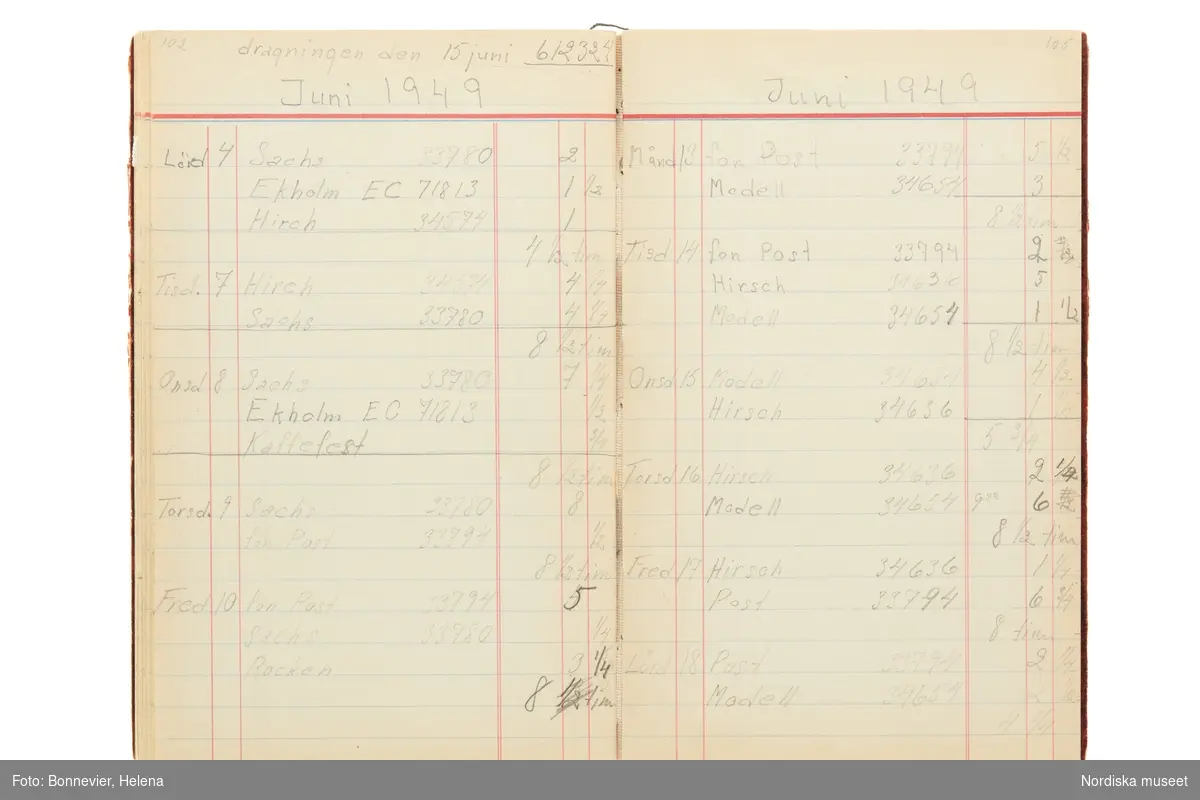 102
dragningen den 15 juni 612324
Juni 1949
Lörd 4 Sachs 33780 2
Ekholm EC 71813 1 1/2
Hirch 34574 1
4 1/2 tim
Tisd. 7 Hirch 34574 4 1/4
Sachs 33780 4 1/4
8 1/2 tim
Onsd 8 Sachs 33780 7 1/4
Ekholm EC 71813 1/2
Kaffefest 3/4
8 1/2 tim
Torsd. 9 Sachs 33780 8
fon Post 33794 1/2
8 1/2 tim
Fred 10 fon Post 33794 5
Sachs 33780 1/4
Backen 3 1/4
8 tim
105
Juni 1949
Månd 13 fon Post 33794 5 1/2
Modell 34654 3
8 1/2 tim
Tisd 14 fon Post 33794 2
Hirsch 3463 5
Modell 34654 1 1/2
8 1/2 tim
Onsd 15 Modell 34654 4 1/2
Hirsch 34636 1
5 3/4
Torsd 16 Hirsch 34636 2
Modell 34654 6
8 1/2 tim
Fred 17 Hirsch 34636 1 1/4
Post 33794 6 3/4
8 tim
Lörd 18 Post 33794 2 1/4
Modell 34654 2
4 1/4
Foto: Bonnevier, Helena
Nordiska museet